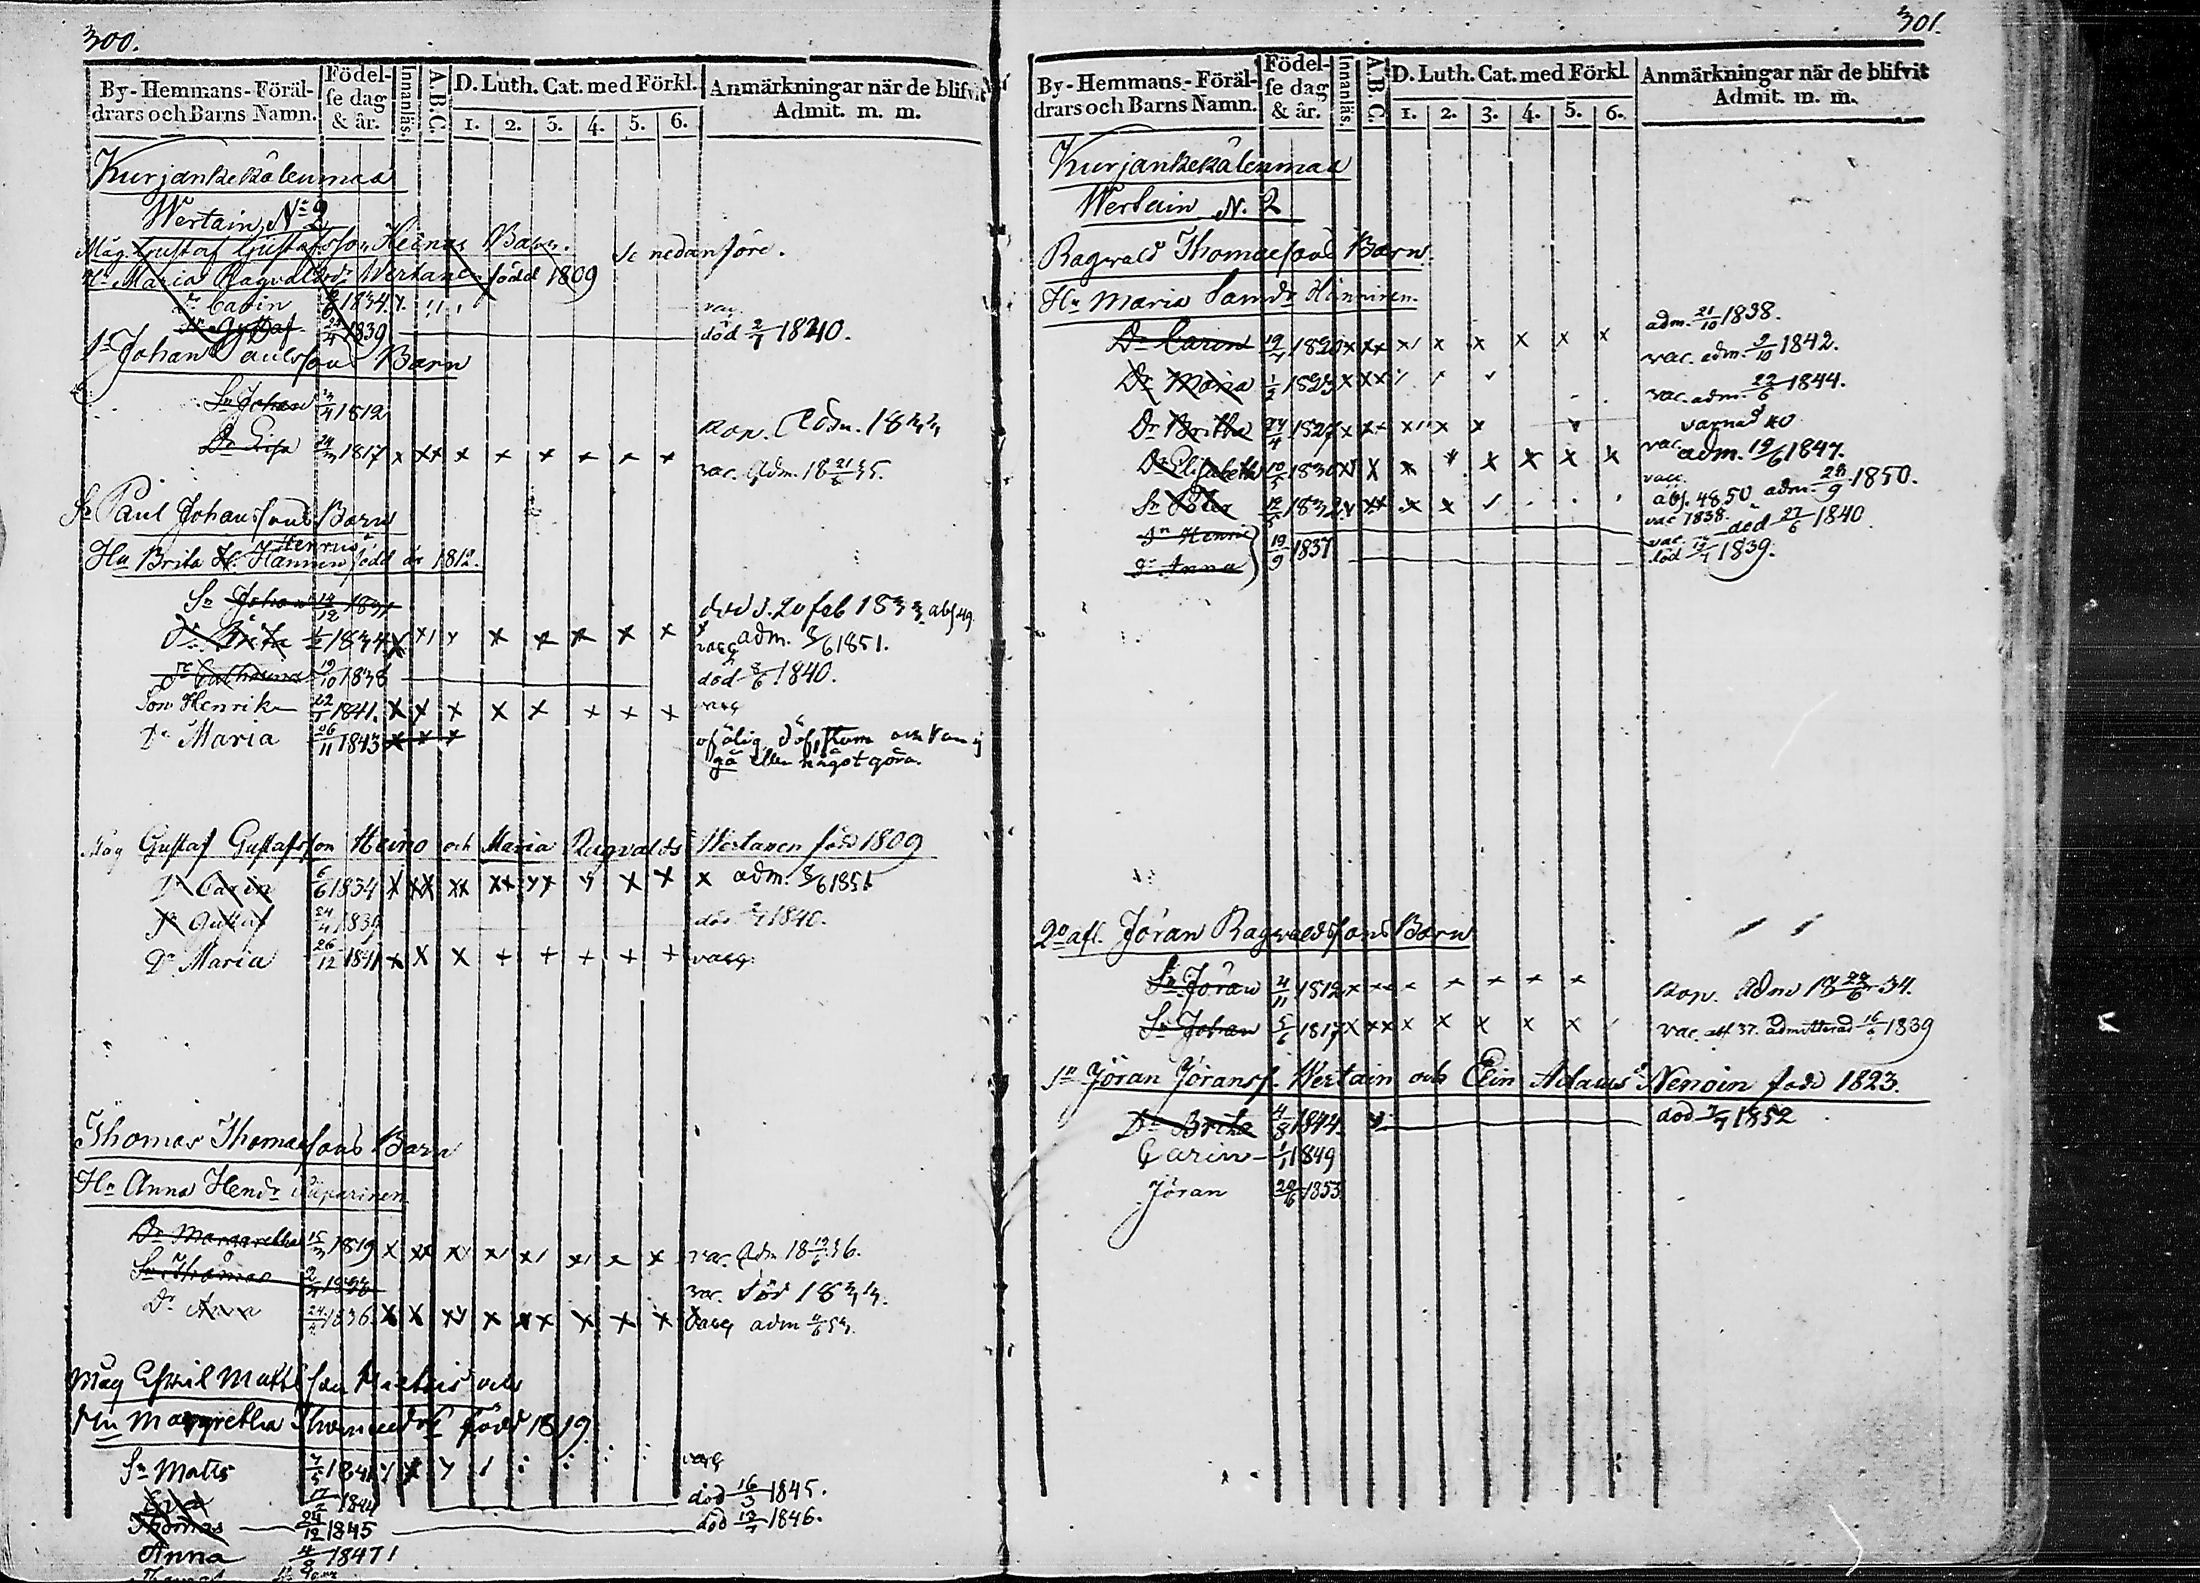 300.
By-Hemmans-Föräl-
drars och Barns Namn.
Födel-
se dag
& år.
Innanläs.
A.B.C.
D. Luth. Cat. med Förkl.
1. 2. 3. 4. 5. 6.
Anmärkningar när de blifvit
Admit. m. m.
Kurjankekälenmaa
Wertain, No 2
Måg. Gustaf Gustafsson Heinos Barn. Se nedanföre.
Hu Maria Ragvaldsdr Wertanen född 1809
Dr Carin 6/6 1834 vac.
Sn Gustaf 24/4 1839 död 2/7 1840.
1n Johan Paulssons Barn
Sn Johan 3/4 1812 kop. Adm. 1833
Dr Lisa 24/3 1817 x xx x x x x x x vac. Adm. 18 21/6 35.
Sn Paul Johanssons Barn
Hu Brita H. Hänninen född år 1812.
Sn Johan 14/12 1831 död d. 20 feb 1833 abs 49
Dr Brita 1/2 1834 vacc adm. 8/6 1851.
Dr Catharina 19/10 1838 död 8/6 1840.
Son Henrik 22/1 1841. x x x x x x x x vacc
Dr Maria 26/11 1843 x x x ofälig, döf, stum och kan ej
gå eller något göra.
Måg Gustaf Gustafsson Heino och Maria Ragvalds Wertanen född 1809
Dr Carin 6/6 1834 x adm. 8/6 1851
Sn Gustaf 24/4 1839 död 2/7 1840.
Dr Maria 26/12 1841 x x x + + + + + vacc.
Thomas Thomassons Barn
Hu Anna Hendr
Dr Margaretha 15/3 1819 vac. Adm 18 19/6 36.
Sn Thomas vac. död 1833.
Dr Anna 24/4 1836. vacc adm 53.
Måg Eskil Mattsson och
Hu Margretha Thomasdr född 1819
Sn Matts vacc
Eva 17/2 1844 död 16/3 1845.
Thomas 24/12 1845 död 13/7 1846.
Anna 4/9 1847
301.
By-Hemmans-Föräl-
drars och Barns Namn.
Födel-
se dag
& år.
Innanläs.
A.B.C.
D. Luth. Cat. med Förkl
1. 2. 3. 4. 5. 6.
Anmärkningar när de blifvit
Admit. m. m.
Kurjankekälenmaa
Wertain N. 2
Ragwald Thomassons Barn
Hu Maria Samdr Hänninen
Dr Carin 19/7 1820 adm. 21/10 1838.
Dr Maria 1/2 1823 vac. adm. 9/10 1842.
Dr Britha 24/4 1827 vac. adm. 22/6 1844.
varnad
Dr Elisabeth 10/5 1830 vac. adm. 19/6 1847.
Sn Peter 12/5 1832 vacc. abs. 48 50 adm. 28/9 1850.
Sn Henric vac 1838. död 27/6 1840
Dr Anna 19/9 1837 vac. död 1839.
2o afl. Jöran Ragwaldssons Barn
Sn Jöran 4/11 1812 kop. Adm 18 22/6 34.
Sn Johan 5/6 1817 vac. abs 37. admitterad 16/6 1839
Sn Jöran Jöranss. Wertain och Elin Adams Dr Nenoin född 1823.
Dr Brita 4/8 1844 död 7/7 1852
Carin 1/1 1849
Jöran 20/6 1853